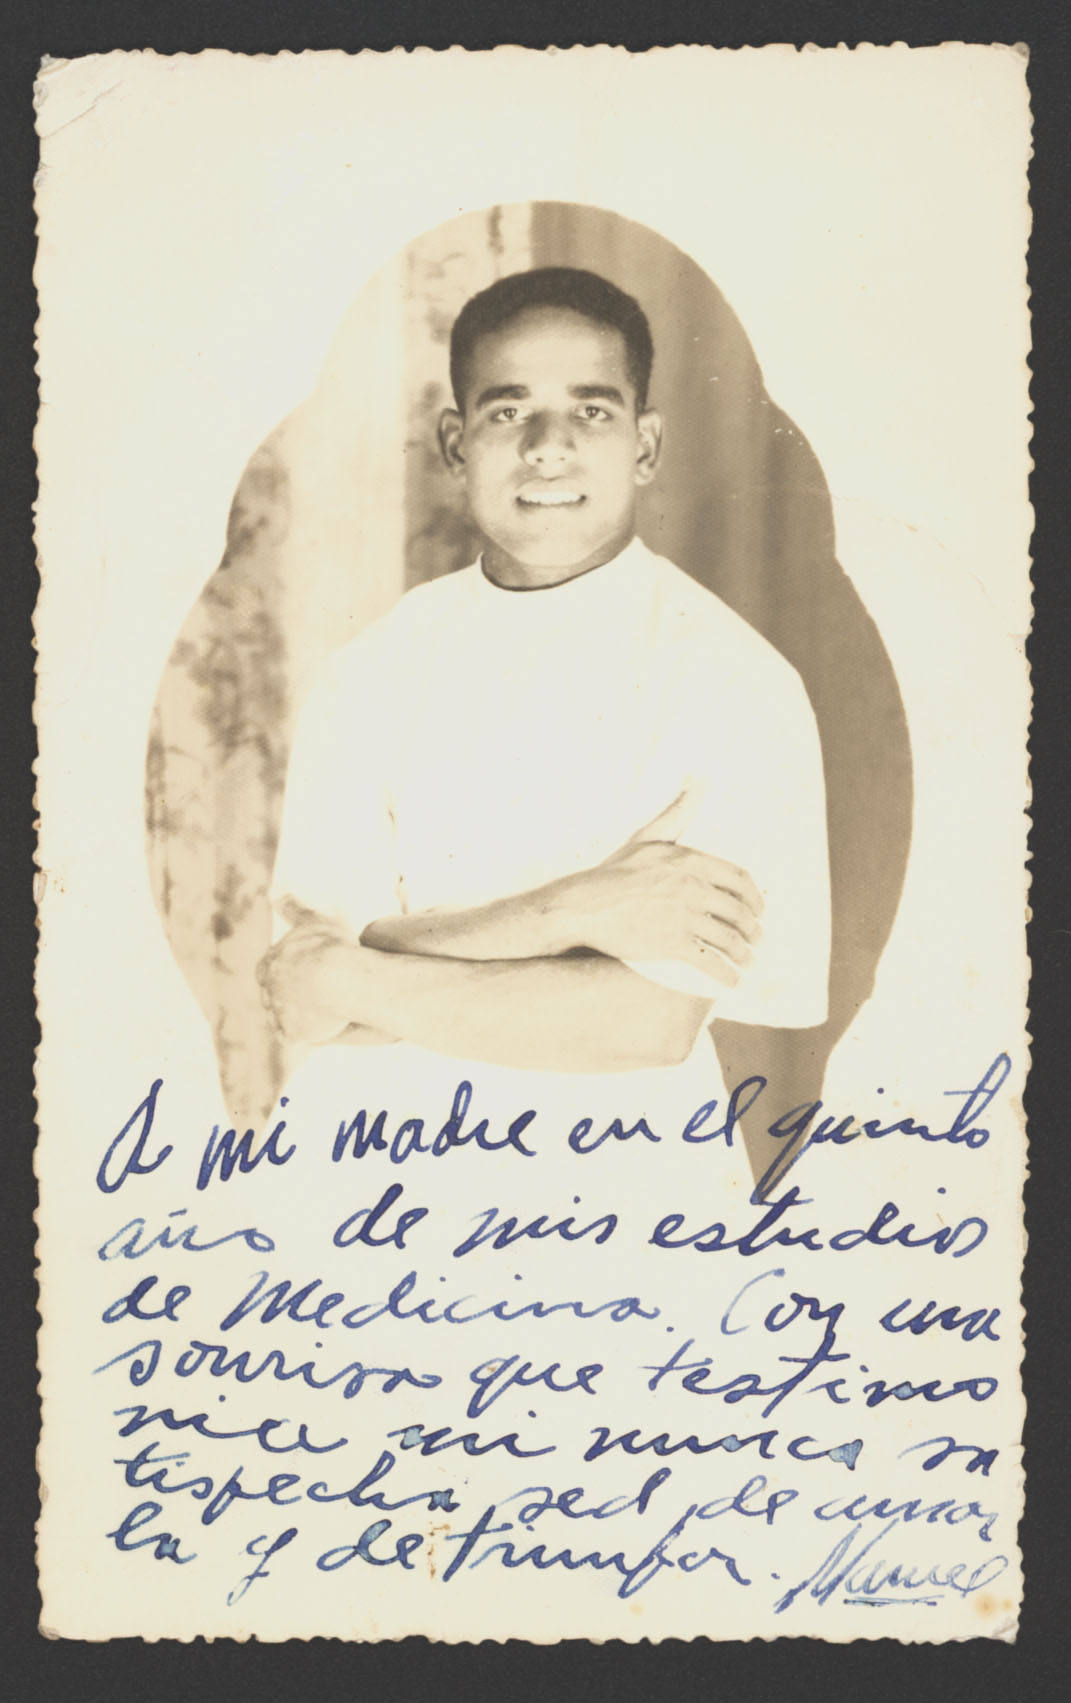 A mi madre en el quinto
año de mis estudios
de Medicina. Con una
sonrisa que testimo
nia mi nunca sa
tisfecha sed de amar
la y de triunfar. Manuel